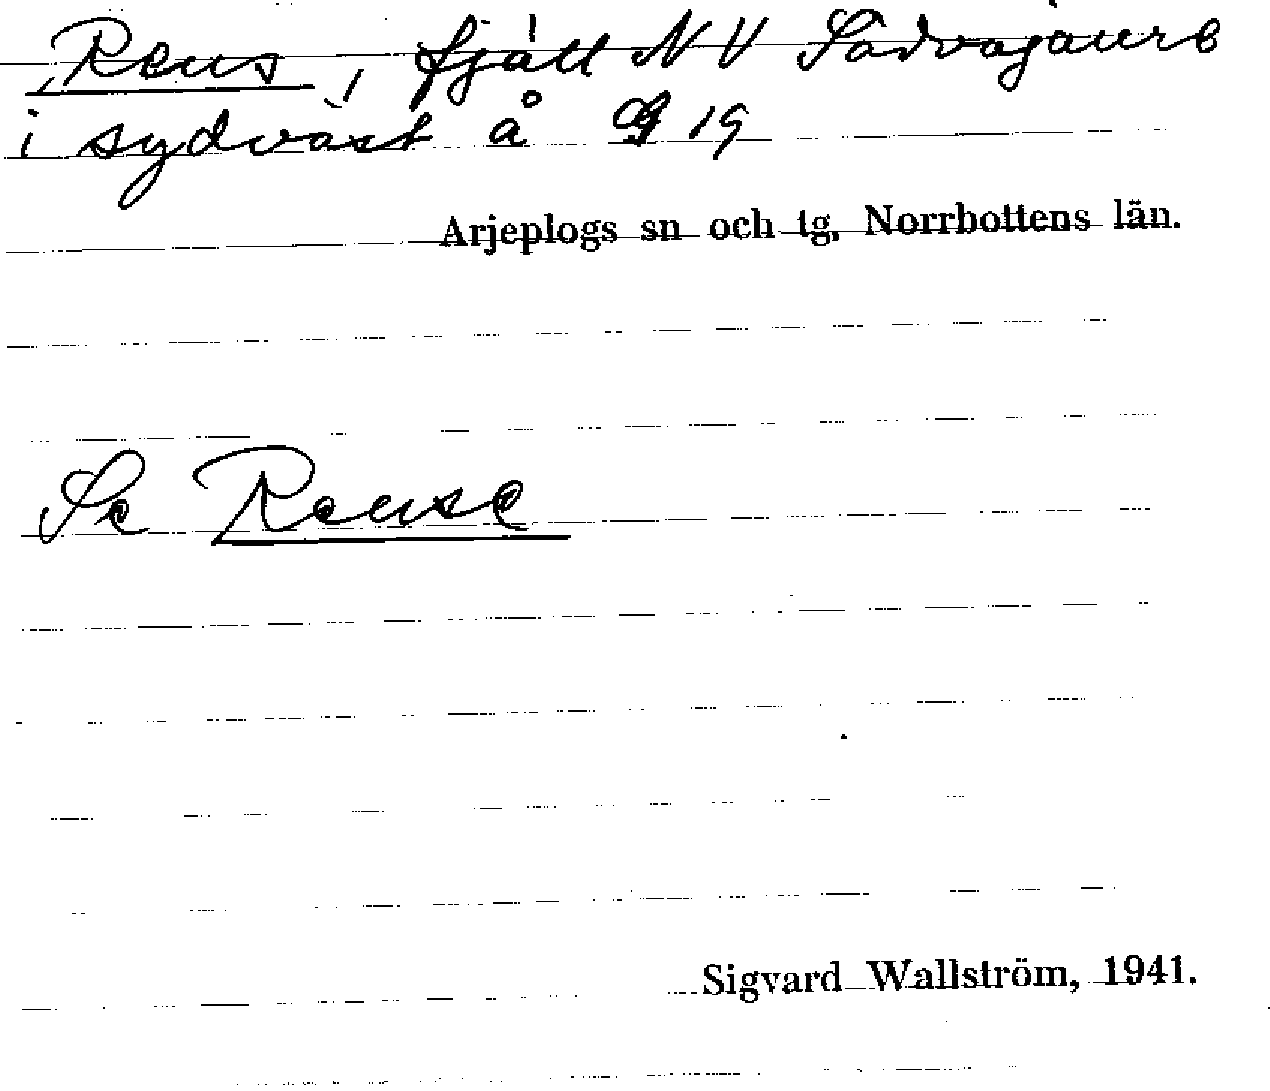 Reus, fjäll NV Sädvajaure
i sydväst å 19
Arjeplogs sn och tg, Norrbottens län.
Se Reuse
Sigvard Wallström, 1941.